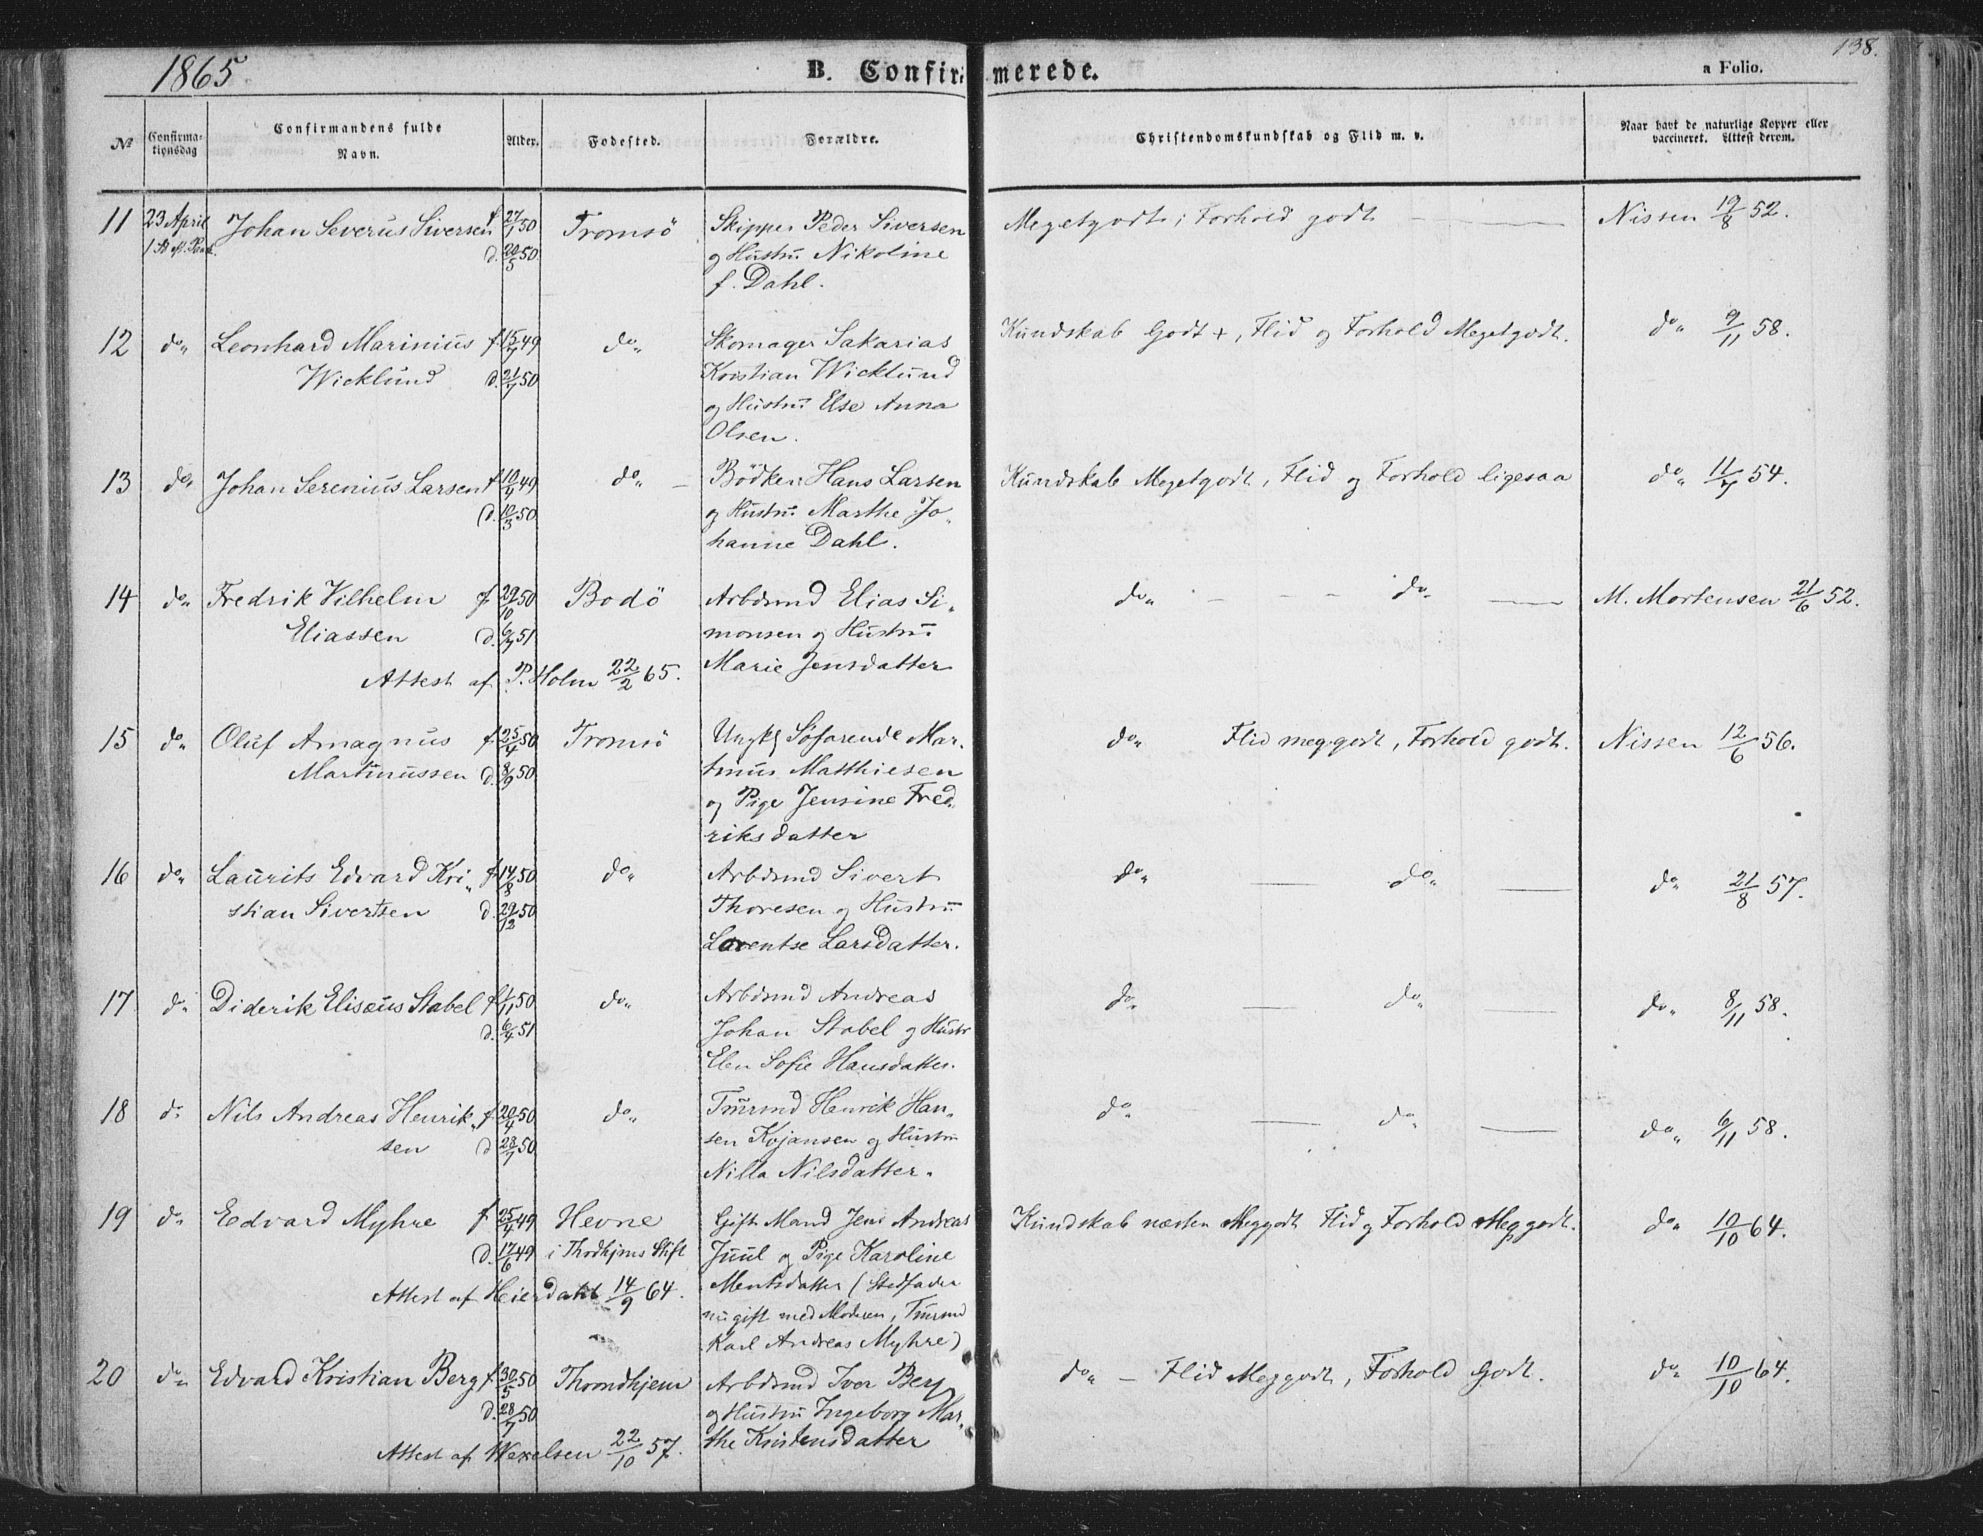 1865.
B. Confirmerede.
138.
a Folio.
No
Confirma-
tionsdag
Confirmandens fulde
Navn.
Alder.
Fødested.
Forældre.
Christendomskundskab og Flid m. v.
Naar havt de naturlige Kopper eller
vaccineret. Attest derom.
11 23 April Johan Severus Siversen f 27/1 50 Tromsö Skipper Peder Siversen Megetgodt; Forhold godt Nissen 19/8 52.
d. 20/5 50 og Hustru Nikoline
f. Dahl.
12 do" Leonhard Marinius f 15/7 49 do" Skomager Sakarias Kundskab Godt +, Flid og Forhold Megetgodt. do" 9/11 58.
Wicklund d. 21/7 50 Kristian Wicklund
og Hustru Else Anna
Olsen.
13 do" Johan Serenius Larsen f 10/7 49 do" Bödker Hans Larsen Kundskab Megetgodt, Flid og Forhold ligesaa do" 11/7 54.
d. 10/3 50 og Hustru Marthe Jo-
hanne Dahl.
14 do" Fredrik Vilhelm f 29/10 50 Bodö Arbdsmd Elias Si- do" do" M. Mortensen 21/6 52.
Eliassen d. 6/7 51 monsen og Hustru
Attest af P. Holm 22/2 65. Marie Jensdatter
15 do" Oluf Amagnus f 25/4 50 Tromsö Ungk Söfarende Mar- do" Flid meg.godt, Forhold godt. Nissen 12/6 56.
Martinussen d. 8/9 50 tinus Matthiesen
og Pige Jensine Fred-
riksdatter
16 do" Laurits Edvard Kri- f 14/8 50 do" Arbdsmd Sivert do" do" do" 21/8 57.
stian Sivertsen d. 29/12 50 Thoresen og Hustru
Lorentse Larsdatter.
17 do" Diderik Elisæus Stabel f 1/11 50 do" Arbdsmd Andreas do" do" do" 8/11 58.
d. 6/4 51 Johan Stabel og Hustr
Elen Sofie Hansdatter.
18 do Nils Andreas Henrik- f 20/4 50 do" Tmrmd Henrik Han- do" do" do" 6/11 58.
sen d 28/7 50 sen Kojansen og Hustru
Nilla Nilsdatter.
19 do" Edvard Myhre f 25/4 49 Hevne Gift Mand Jens Andreas Kundskab næsten Meggodt Flid og Forhold Meggodt. do" 10/10 64.
d. 17/6 49 i Throdhjems Stift Juul og Pige Karoline
Attest af Heierdahl 14/9 64. Mentsdatter (Stedfader
nu gift med Moderen, Tmrmd
Karl Andreas Myhre)
20 do" Edvard Kristian Berg f. 30/5 50 Throndhjem Arbdsmd Iver Berg do" - Flid Meggodt, Forhold Godt. do" 10/10 64.
d. 28/7 50 og Hustru Ingeborg Mar-
Attest af Wexelsen 22/10 57. the Kristensdatter